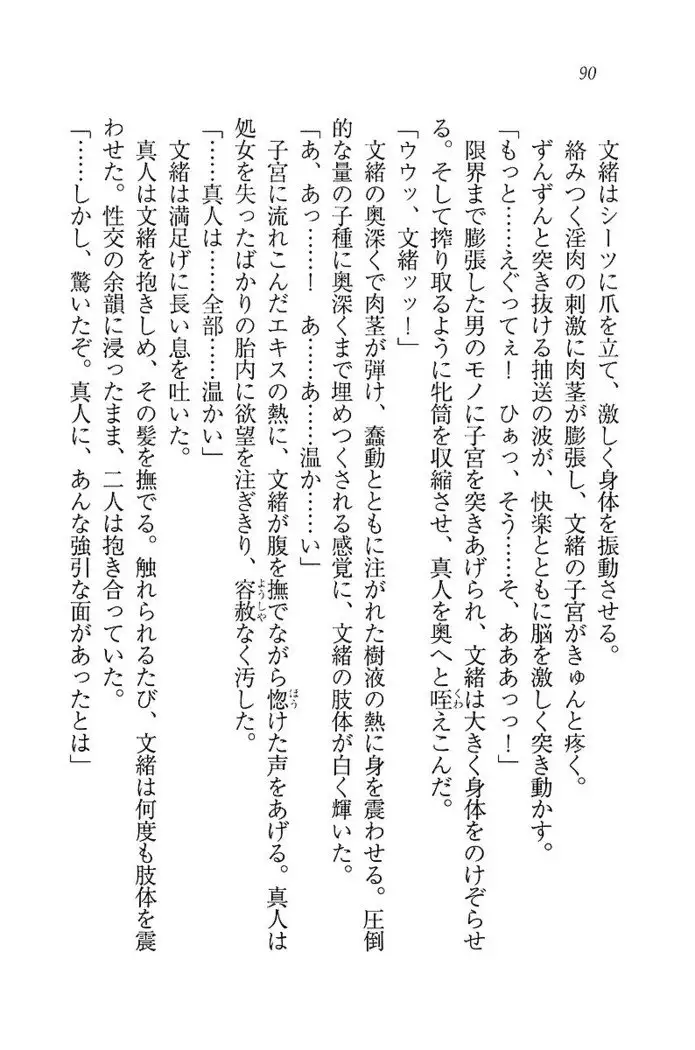 90
文緒はシーツに爪を立て、激しく身体を振動させる。
絡みつく淫肉の刺激に肉茎が膨張し、文緒の子宮がきゅんと疼く。
ずんずんと突き抜ける抽送の波が、快楽とともに脳を激しく突き動かす。
「もっと……えぐってぇ！　ひぁっ、そう……そ、あああっっ！」
限界まで膨張した男のモノに子宮を突きあげられ、文緒は大きく身体をのけぞらせ
る。そして搾り取るように牝筒を収縮させ、真人を奥へと咥えこんだ。
「ウウッ、文緒ッッ！」
文緒の奥深くで肉茎が弾け、蠢動とともに注がれた樹液の熱に身を震わせる。圧倒
的な量の子種に奥深くまで埋めつくされる感覚に、文緒の肢体が白く輝いた。
「あ、あっ……！　あ……あ……温か……い」
子宮に流れこんだエキスの熱に、文緒が腹を撫でながら惚けた声をあげる。真人は
処女を失ったばかりの胎内に欲望を注ぎきり、容赦なく汚した。
「……真人は……全部……温かい」
文緒は満足げに長い息を吐いた。
真人は文緒を抱きしめ、その髪を撫でる。触れられるたび、文緒は何度も肢体を震
わせた。性交の余韻に浸ったまま、二人は抱き合っていた。
「……しかし、驚いたぞ。真人に、あんな強引な面があったとは」